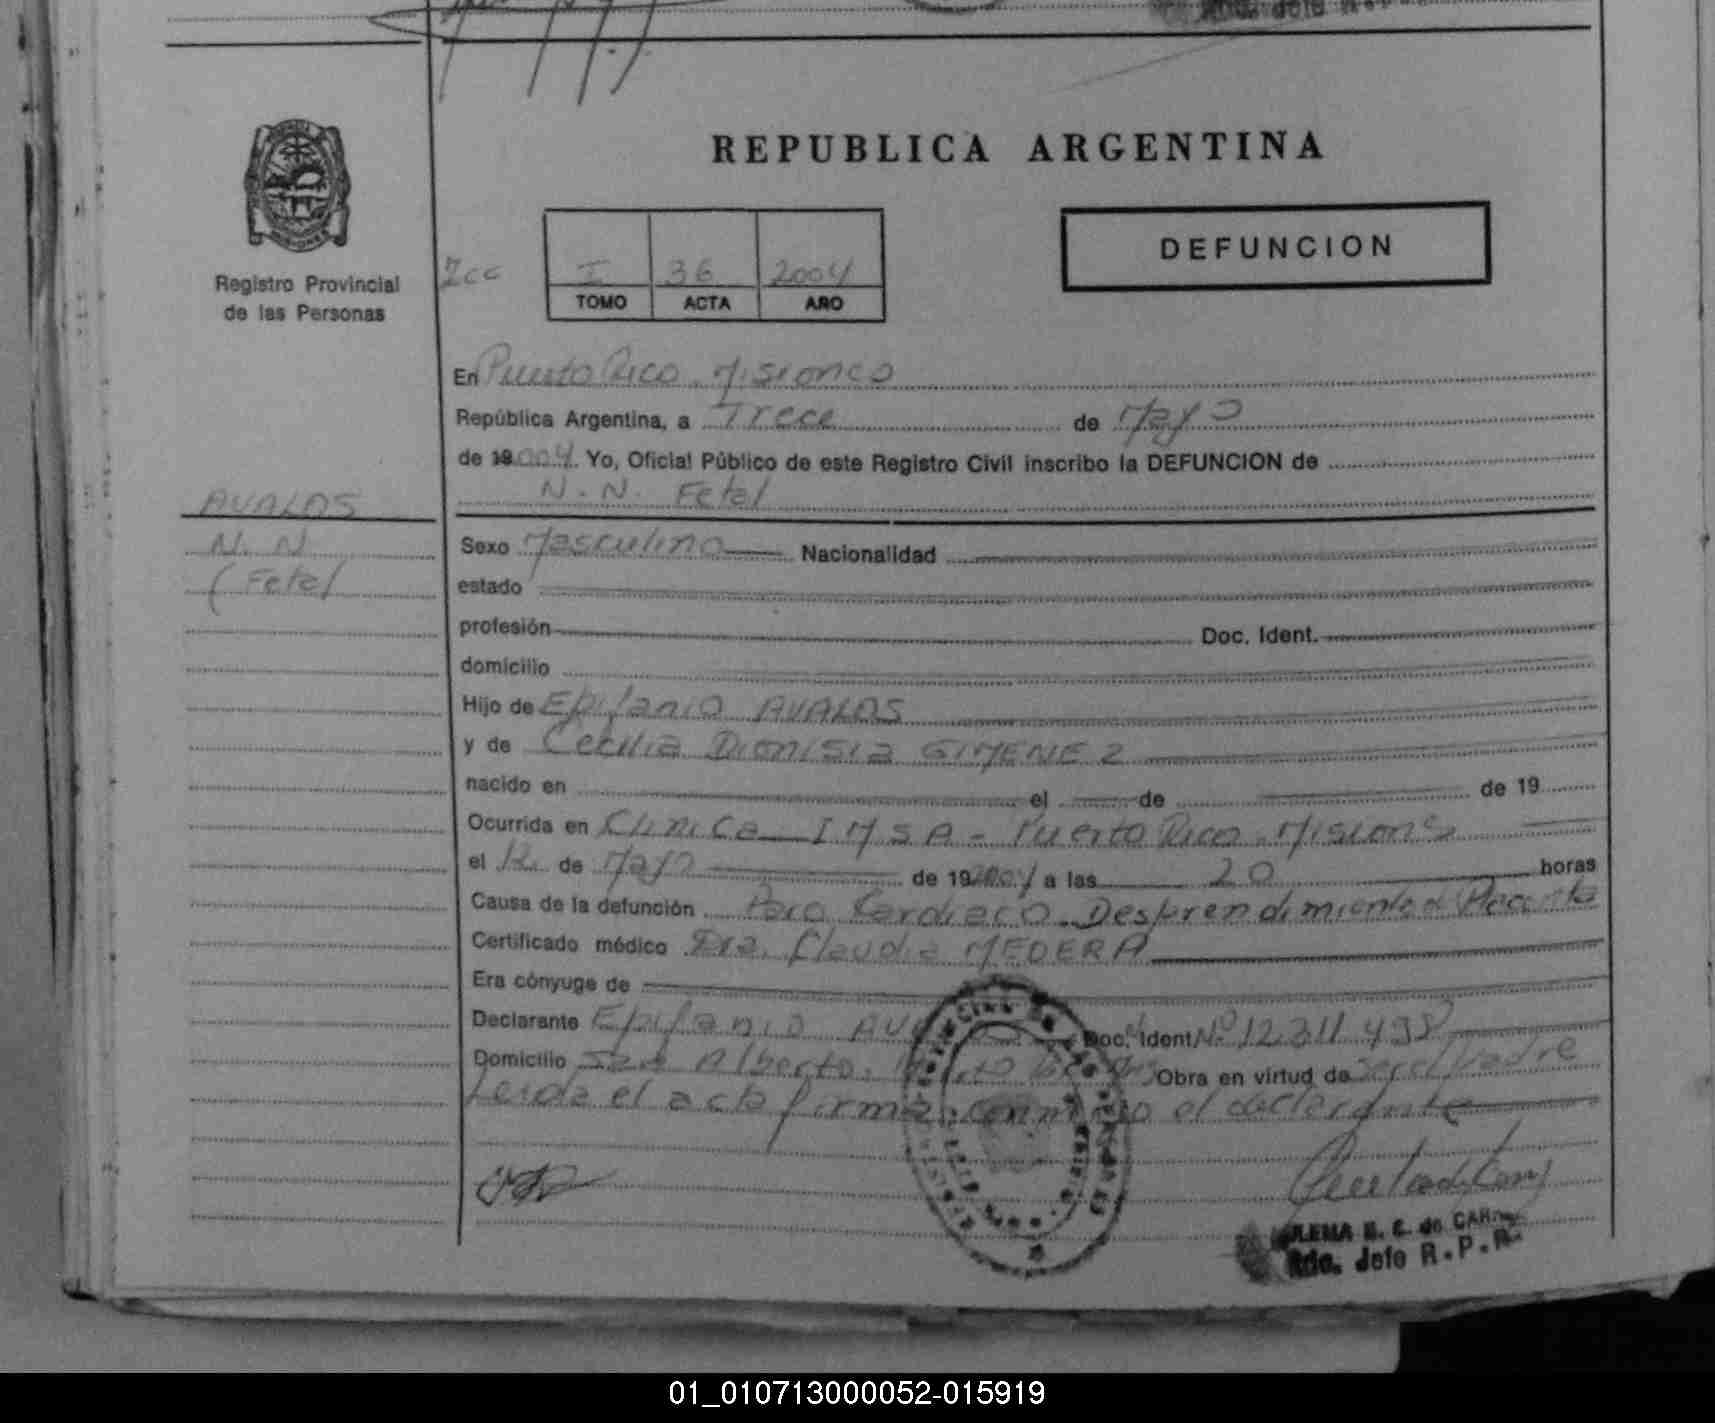 REPUBLICA ARGENTINA
MISIONES
Registro Provincial
de las Personas
I 36 2004
TOMO ACTA AÑO
DEFUNCION
En Puerto Rico. Misiones
República Argentina, a Trece de Mayo
de 19 2004 Yo, Oficial Público de este Registro Civil inscribo la DEFUNCION de
N.N. Fetal
AVALOS
N.N
(Fetal
Sexo Masculino Nacionalidad
estado
profesión Doc. Ident.
domicilio
Hijo de Epifanio AVALOS
y de Cecilia Dionisia GIMENEZ
nacido en el de de 19
Ocurrida en Clinica IMSA - Puerto Rico. Misiones
el 12 de Mayo de 19 2004 a las 20 horas
Causa de la defunción Paro Cardiaco. Desprendimiento d Placenta
Certificado médico Dra. Claudia MEDERA
Era cónyuge de
Declarante Epifanio Doc. Ident. Nº 12.311.438
Domicilio San Alberto. Obra en virtud de ser el Padre
Leida el acta firma conmigo el declarante
R. P. R.
01_010713000052-015919